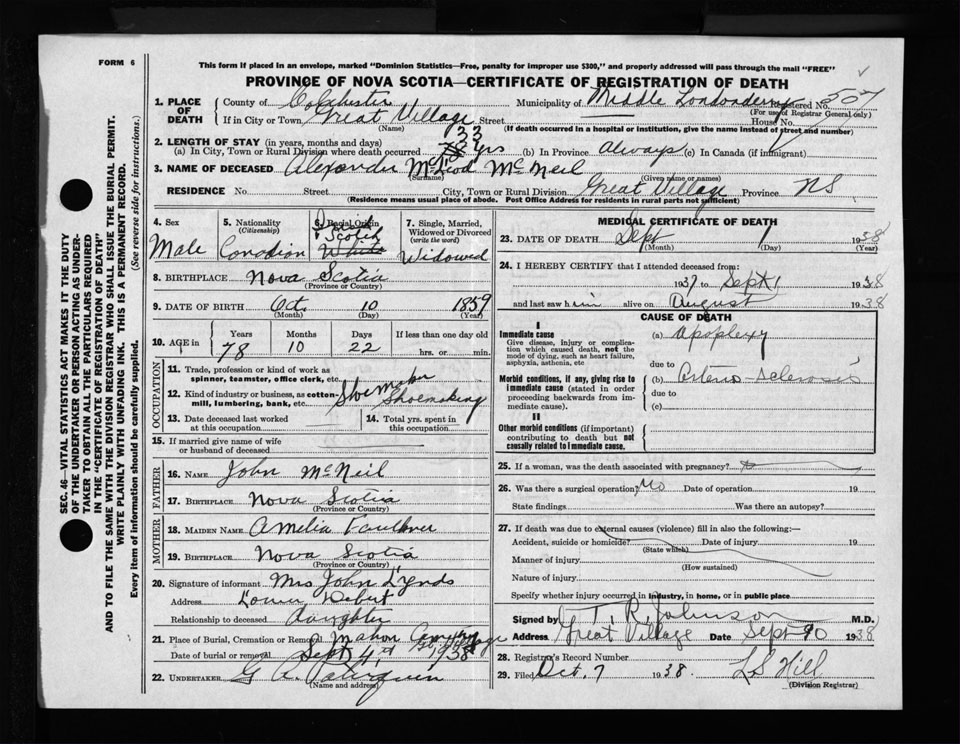 FORM 6
This form if placed in an envelope, marked "Dominion Statistics—Free, penalty for improper use $300," and properly addressed will pass through the mail "FREE"
PROVINCE OF NOVA SCOTIA—CERTIFICATE OF REGISTRATION OF DEATH
SEC. 46—VITAL STATISTICS ACT MAKES IT THE DUTY
OF THE UNDERTAKER OR PERSON ACTING AS UNDER-
TAKER TO OBTAIN ALL THE PARTICULARS REQUIRED
IN THE "CERTIFICATE OF REGISTRATION OF DEATH"
AND TO FILE THE SAME WITH THE DIVISION REGISTRAR WHO SHALL ISSUE THE BURIAL PERMIT.
WRITE PLAINLY WITH UNFADING INK. THIS IS A PERMANENT RECORD.
Every item of information should be carefully supplied. (See reverse side for instructions.)
1. PLACE OF DEATH
County of Colchester Municipality of Middle Londonderry Registered No. 507
(For use of Registrar General only)
If in City or Town Great Village Street House No.
(Name) (If death occurred in a hospital or institution, give the name instead of street and number)
2. LENGTH OF STAY (in years, months and days) 33
(a) In City, Town or Rural Division where death occurred yrs (b) In Province Always (c) In Canada (if immigrant)
3. NAME OF DECEASED Alexander McLeod McNeil
(Surname) (Given name or names)
RESIDENCE No. Street City, Town or Rural Division Great Village Province NS
(Residence means usual place of abode. Post Office Address for residents in rural parts not sufficient)
4. Sex
Male
5. Nationality
(Citizenship)
Canadian
6. Racial Origin
Scotch
White
7. Single, Married,
Widowed or Divorced
(write the word)
Widowed
8. BIRTHPLACE Nova Scotia
(Province or Country)
9. DATE OF BIRTH Oct. 10 1859
(Month) (Day) (Year)
10. AGE in Years Months Days If less than one day old
78 10 22 hrs. or min.
OCCUPATION
11. Trade, profession or kind of work as
spinner, teamster, office clerk, etc. Shoemaker
12. Kind of industry or business, as cotton-
mill, lumbering, bank, etc. Shoemaking
13. Date deceased last worked
at this occupation
14. Total yrs. spent in
this occupation
15. If married give name of wife
or husband of deceased
FATHER
16. NAME John McNeil
17. BIRTHPLACE Nova Scotia
(Province or Country)
MOTHER
18. MAIDEN NAME Amelia Faulkner
19. BIRTHPLACE Nova Scotia
(Province or Country)
20. Signature of informant Mrs John Lynds
Address Lower Debert
Relationship to deceased daughter
21. Place of Burial, Cremation or Removal Mahon Cemetery Gt. Village
Date of burial or removal Sept 4th 1938
22. UNDERTAKER G A
(Name and address)
MEDICAL CERTIFICATE OF DEATH
23. DATE OF DEATH Sept 1 1938
(Month) (Day) (Year)
24. I HEREBY CERTIFY that I attended deceased from:
1937 to Sept 1 1938
and last saw him alive on August 1938
CAUSE OF DEATH
I
Immediate cause
Give disease, injury or complica-
tion which caused death, not the
mode of dying, such as heart failure,
asphyxia, asthenia, etc
(a) Apoplexy
due to
Morbid conditions, if any, giving rise to
immediate cause (stated in order
proceeding backwards from im-
mediate cause).
(b) Arterio-sclerosis
due to
(c)
II
Other morbid conditions (if important)
contributing to death but not
causally related to immediate cause.
25. If a woman, was the death associated with pregnancy?
26. Was there a surgical operation? No Date of operation 19
State findings Was there an autopsy?
27. If death was due to external causes (violence) fill in also the following:—
Accident, suicide or homicide? Date of injury 19
(State which)
Manner of injury
(How sustained)
Nature of injury
Specify whether injury occurred in industry, in home, or in public place
Signed by T. R. Johnson M.D.
Address Great Village Date Sept 1938
28. Registrar's Record Number
29. Filed Oct. 7 1938. L S Hill
(Division Registrar)